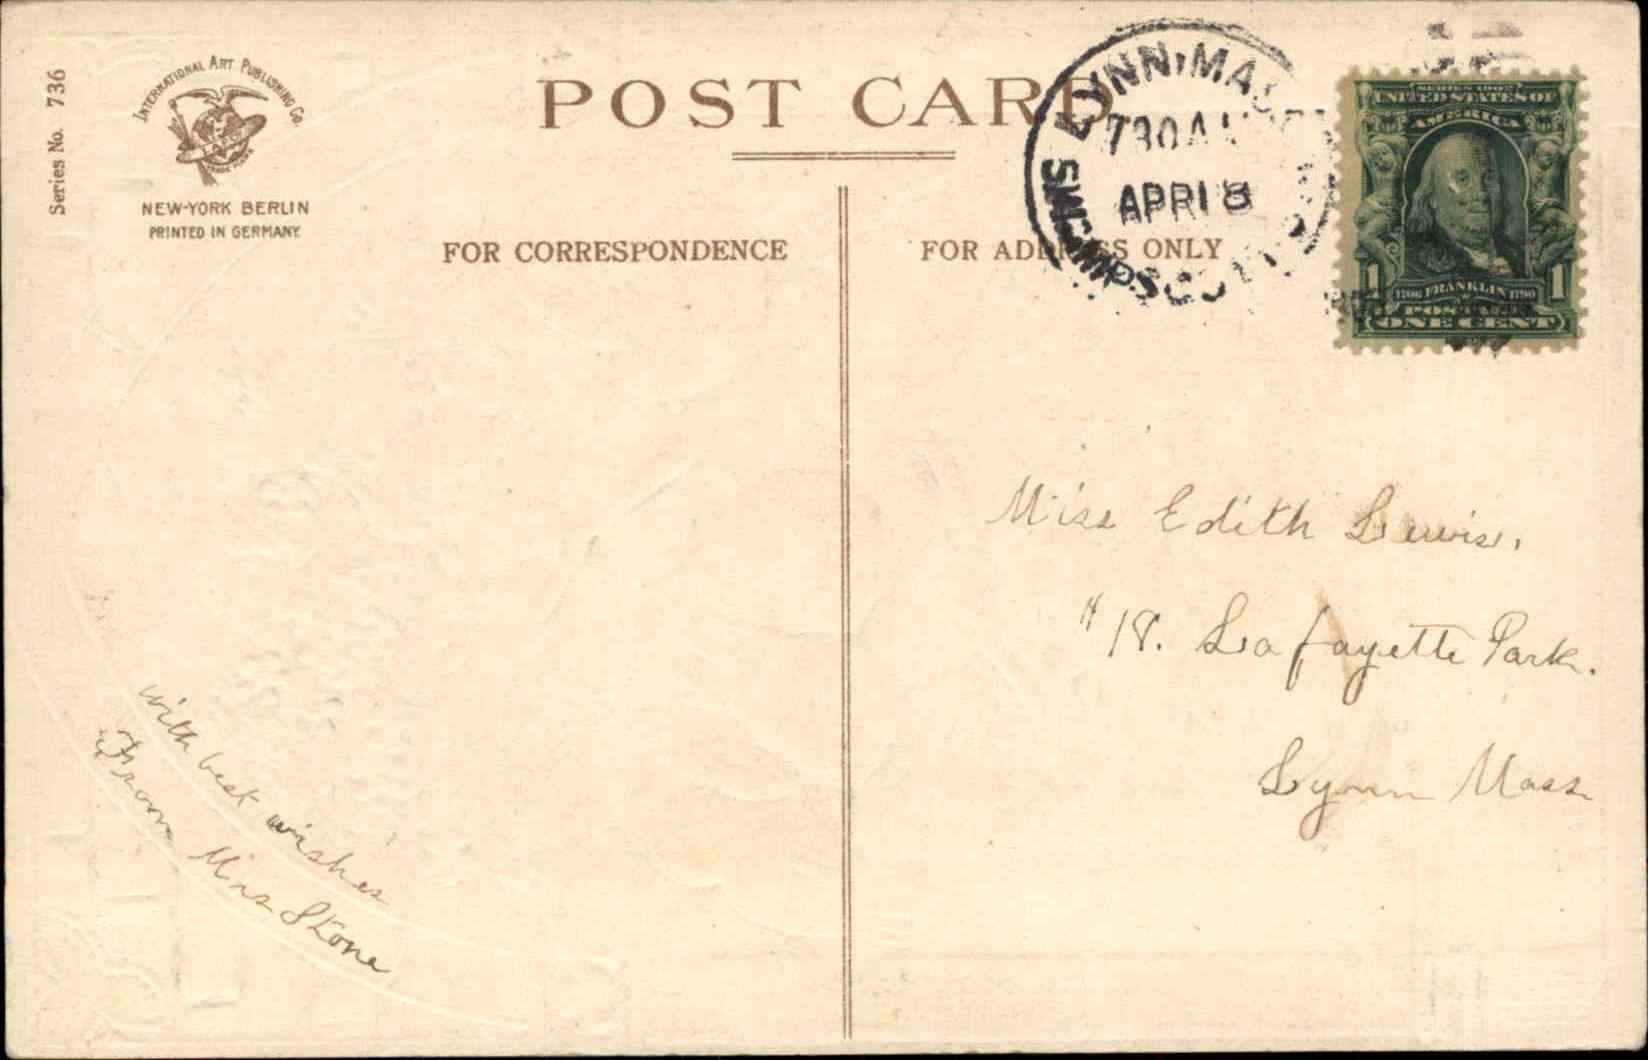 Series No. 736
INTERNATIONAL ART PUBLISHING Co.
NEW-YORK BERLIN
PRINTED IN GERMANY
POST CARD
FOR CORRESPONDENCE
FOR ADDRESS ONLY
LYNN, MASS
730 A
APR 18
SWAMPSCOTT
SERIES 1902
UNITED STATES OF
AMERICA
1 1
1706 FRANKLIN 1790
POSTAGE
ONE CENT
Miss Edith Lewis.
# 18. Lafayette Park.
Lynn Mass
with best wishes
From Mrs Stone